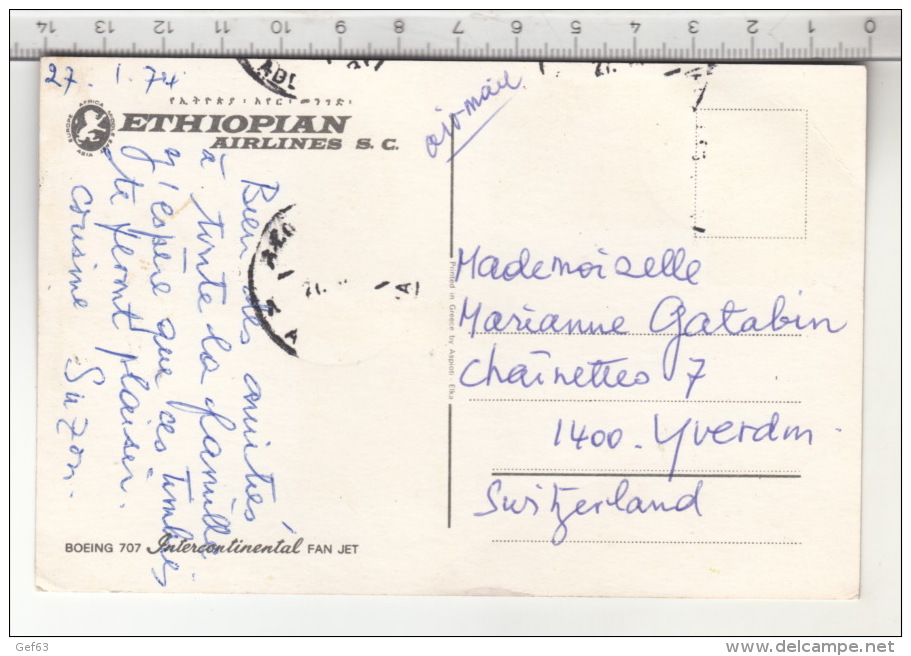 14 13 12 11 10 9 8 7 6 5 4 3 2 1 0
27. 1. 74
EUROPE AFRICA ASIA
የኢትዮጵያ አየር መንገድ
ETHIOPIAN
AIRLINES S. C.
air-mail
Bien des amitiés
à toute la famille
j'espère que ces timbres
te feront plaisir.
cousine Suzon.
Printed in Greece by Aspioti - Elka
Mademoiselle
Marianne Gatabin
Chaînettes 7
1400. Yverdon.
Switzerland
BOEING 707 Intercontinental FAN JET
Gef63
delcampe.net